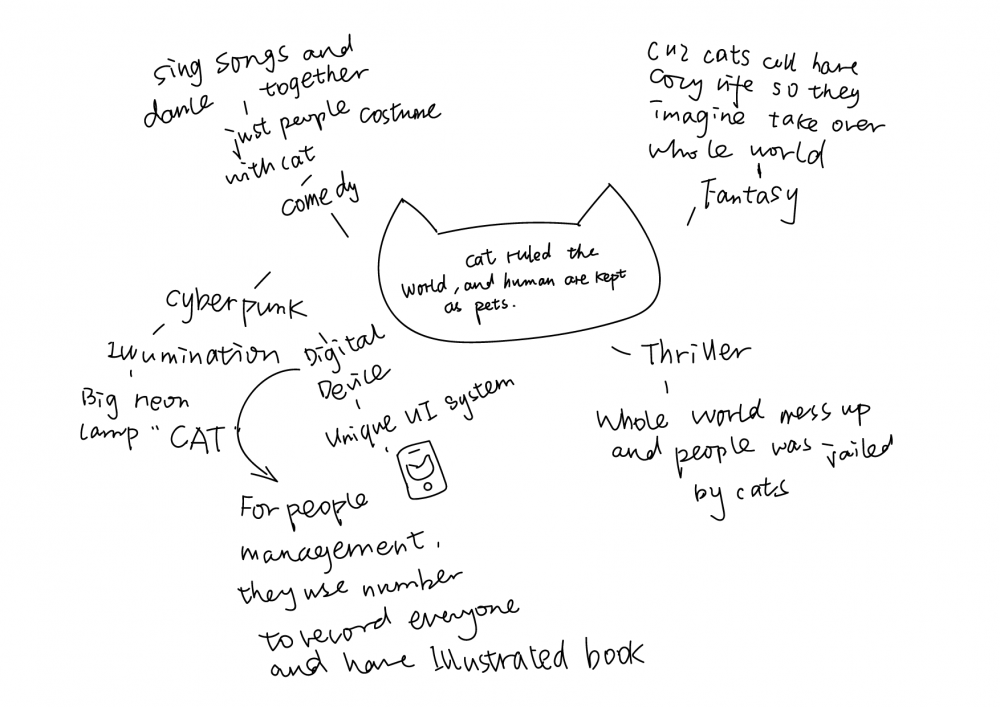 cat ruled the
world, and human are kept
as pets.
sing songs and
dance together
just people costume
with cat
comedy
cuz cats all have
cozy life so they
imagine take over
whole world
Fantasy
cyberpunk
Illumination
Big neon
lamp "CAT"
Digital
Device
unique UI system
For people
management,
they use number
to record everyone
and have Illustrated book
Thriller
whole world mess up
and people was jailed
by cats